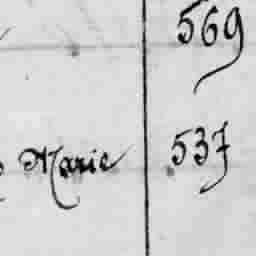 569
Marie 537